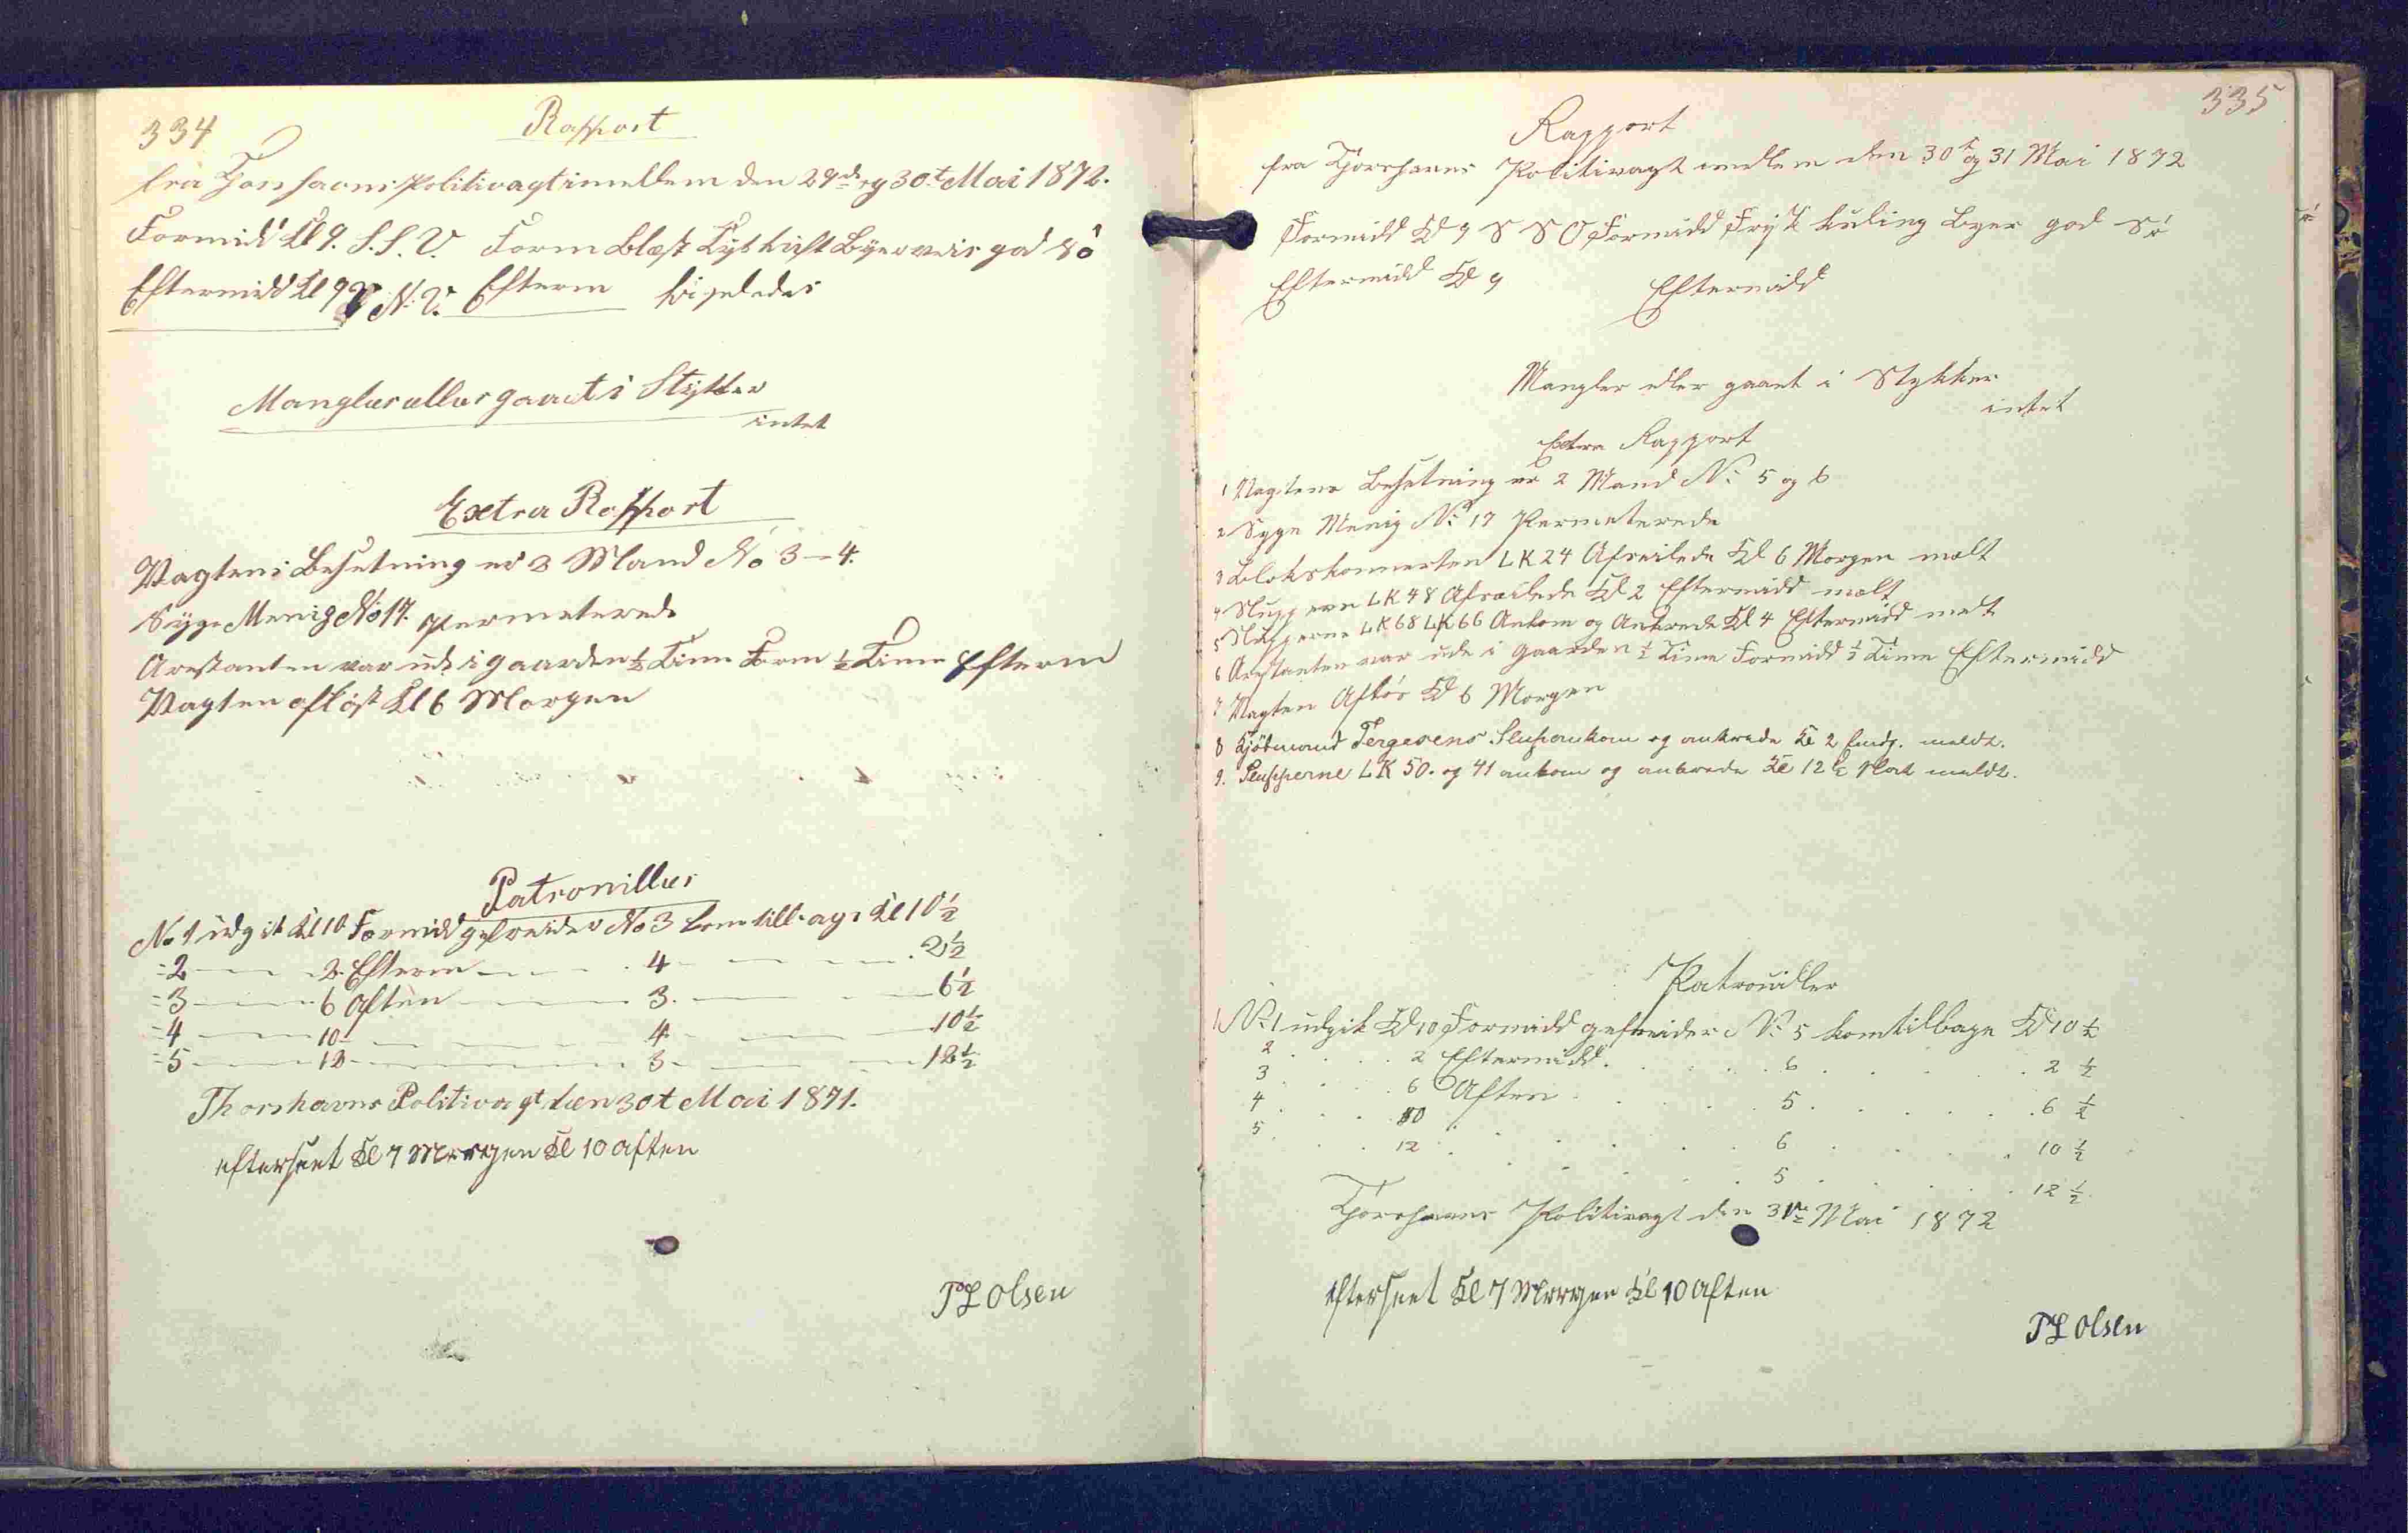 334
Rapport
fra Thorshavns Politivagt imellem den 29d og 30t Mai 1872.
Formidd Kl 9. S.S.V. Form Blæst Tyk Luft Byerveir god Sö
Eftermidd Kl 9 N.V. Efterm ligeledes
Mangler eller gaaet i Stykker
intet
Extra Rapport
Vagtens Besetning er 2 Mand No 3-4.
Syge Menig No 17. Permeterede
Arestanten var ude i gaarden ½ Time Form ½ Time Efterm
Vagten aflöst Kl 6 Morgen
Patrouiller
No 1 udgik Kl 10 Formidd gefreider No 3 kom tilbage Kl 10½
- 2 - - 2 Efterm - - - 4 - - - 2½
- 3 - - 6 Aften - - 3. - - - 6½
- 4 - - 10 - - - 4 - - - 10½
- 5 - - 12 - - - 3 - - - 12½
Thorshavns Politivagt den 30t Mai 1871.
efterseet Kl 7 Morgen Kl 10 aften
PL Olsen
335
Rapport
fra Thorshavns Politivagt imellem den 30t og 31 Mai 1872
Formidd Kl 9 S S O Formidd Frisk Kuling Byer god Sö
Eftermidd Kl 9 Eftermidd
Mangler eller gaaet i Stykker
intet
Extra Rapport
1 Vagtens Besetning er 2 Mand No 5 og 6
2 Syge Menig No 17 Permeterede
3 Blokskonnerten LK 24 Afreilede Kl 6 Morgen mælt
4 Sluppen LK 48 Afreilede Kl 2 Eftermidd mælt
5 Slupperne LK 68 LK 66 Ankom og Ankrede Kl 4 Eftermidd melt
6 Arestanten var ude i Gaarden ½ Time Formidd ½ Time Eftermidd
7 Vagten Aflös Kl 6 Morgen
8 Kjöbmand Jergesens Slup ankom og ankrede Kl 2 meldt.
9. Slupperne LK 50. og 41 ankom og ankrede Kl 12½ Nat meldt.
Patrouiller
1 No 1 udgik Kl 10 Formidd gefreider No 5 kom tilbage Kl 10 ½
2 . . . 2 Eftermidd . . . 6 . . . 2 ½
3 . . . 6 Aften . . . 5 . . . 6 ½
4 . . . 10 . . . 6 . . . 10 ½
5 . . . 12 . . . 5 . . . 12 ½
Thorshavns Politivagt den 31te Mai 1872
efterseet Kl 7 Morgen Kl 10 aften
PL Olsen